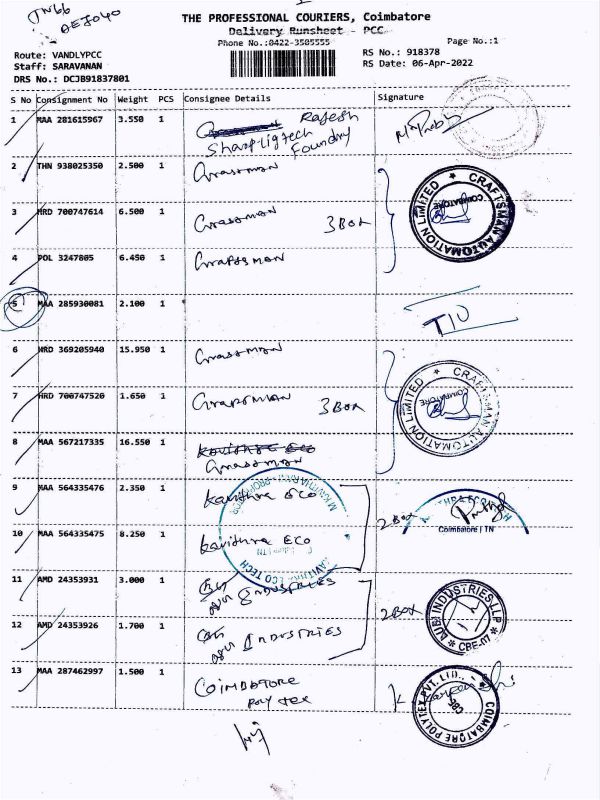 TN66
THE PROFESSIONAL COURIERS, Coimbatore
Delivery Runsheet - PCC
Phone No.:0422-3505555
Page No.:1
Route: VANDLYPCC
RS No.: 918378
Staff: SARAVANAN
RS Date: 06-Apr-2022
DRS No.: DCJB91837801
S No Consignment No Weight PCS Consignee Details Signature
1 MAA 281615967 3.550 1 Rajesh
Sharpligtech Foundry
2 THN 938025350 2.500 1 Craftsman
3 HRD 700747614 6.500 1 Craftsman 3 Box
CRAFTSMAN AUTOMATION LIMITED
COIMBATORE
4 POL 3247805 6.450 1 Craftsman
5 MAA 285930081 2.100 1
6 HRD 369205940 15.950 1 Craftsman
7 HRD 700747520 1.650 1 Craftsman 3 Box
CRAFTSMAN AUTOMATION LIMITED
COIMBATORE
8 MAA 567217335 16.550 1 Kavithra Eco
Craftsman
9 MAA 564335476 2.350 1 Kavithra Eco
2 Box
Coimbatore | TN
10 MAA 564335475 8.250 1 Kavithra ECO
KAVITHRA ECO TECH
11 AMD 24353931 3.000 1 INDUSTRIES
2 Box
AUBI INDUSTRIES LLP
CBE-07
12 AMD 24353926 1.700 1 INDUSTRIES
13 MAA 287462997 1.500 1 COIMBATORE
Poly tex
COIMBATORE POLYTEX PVT. LTD.,
CBE